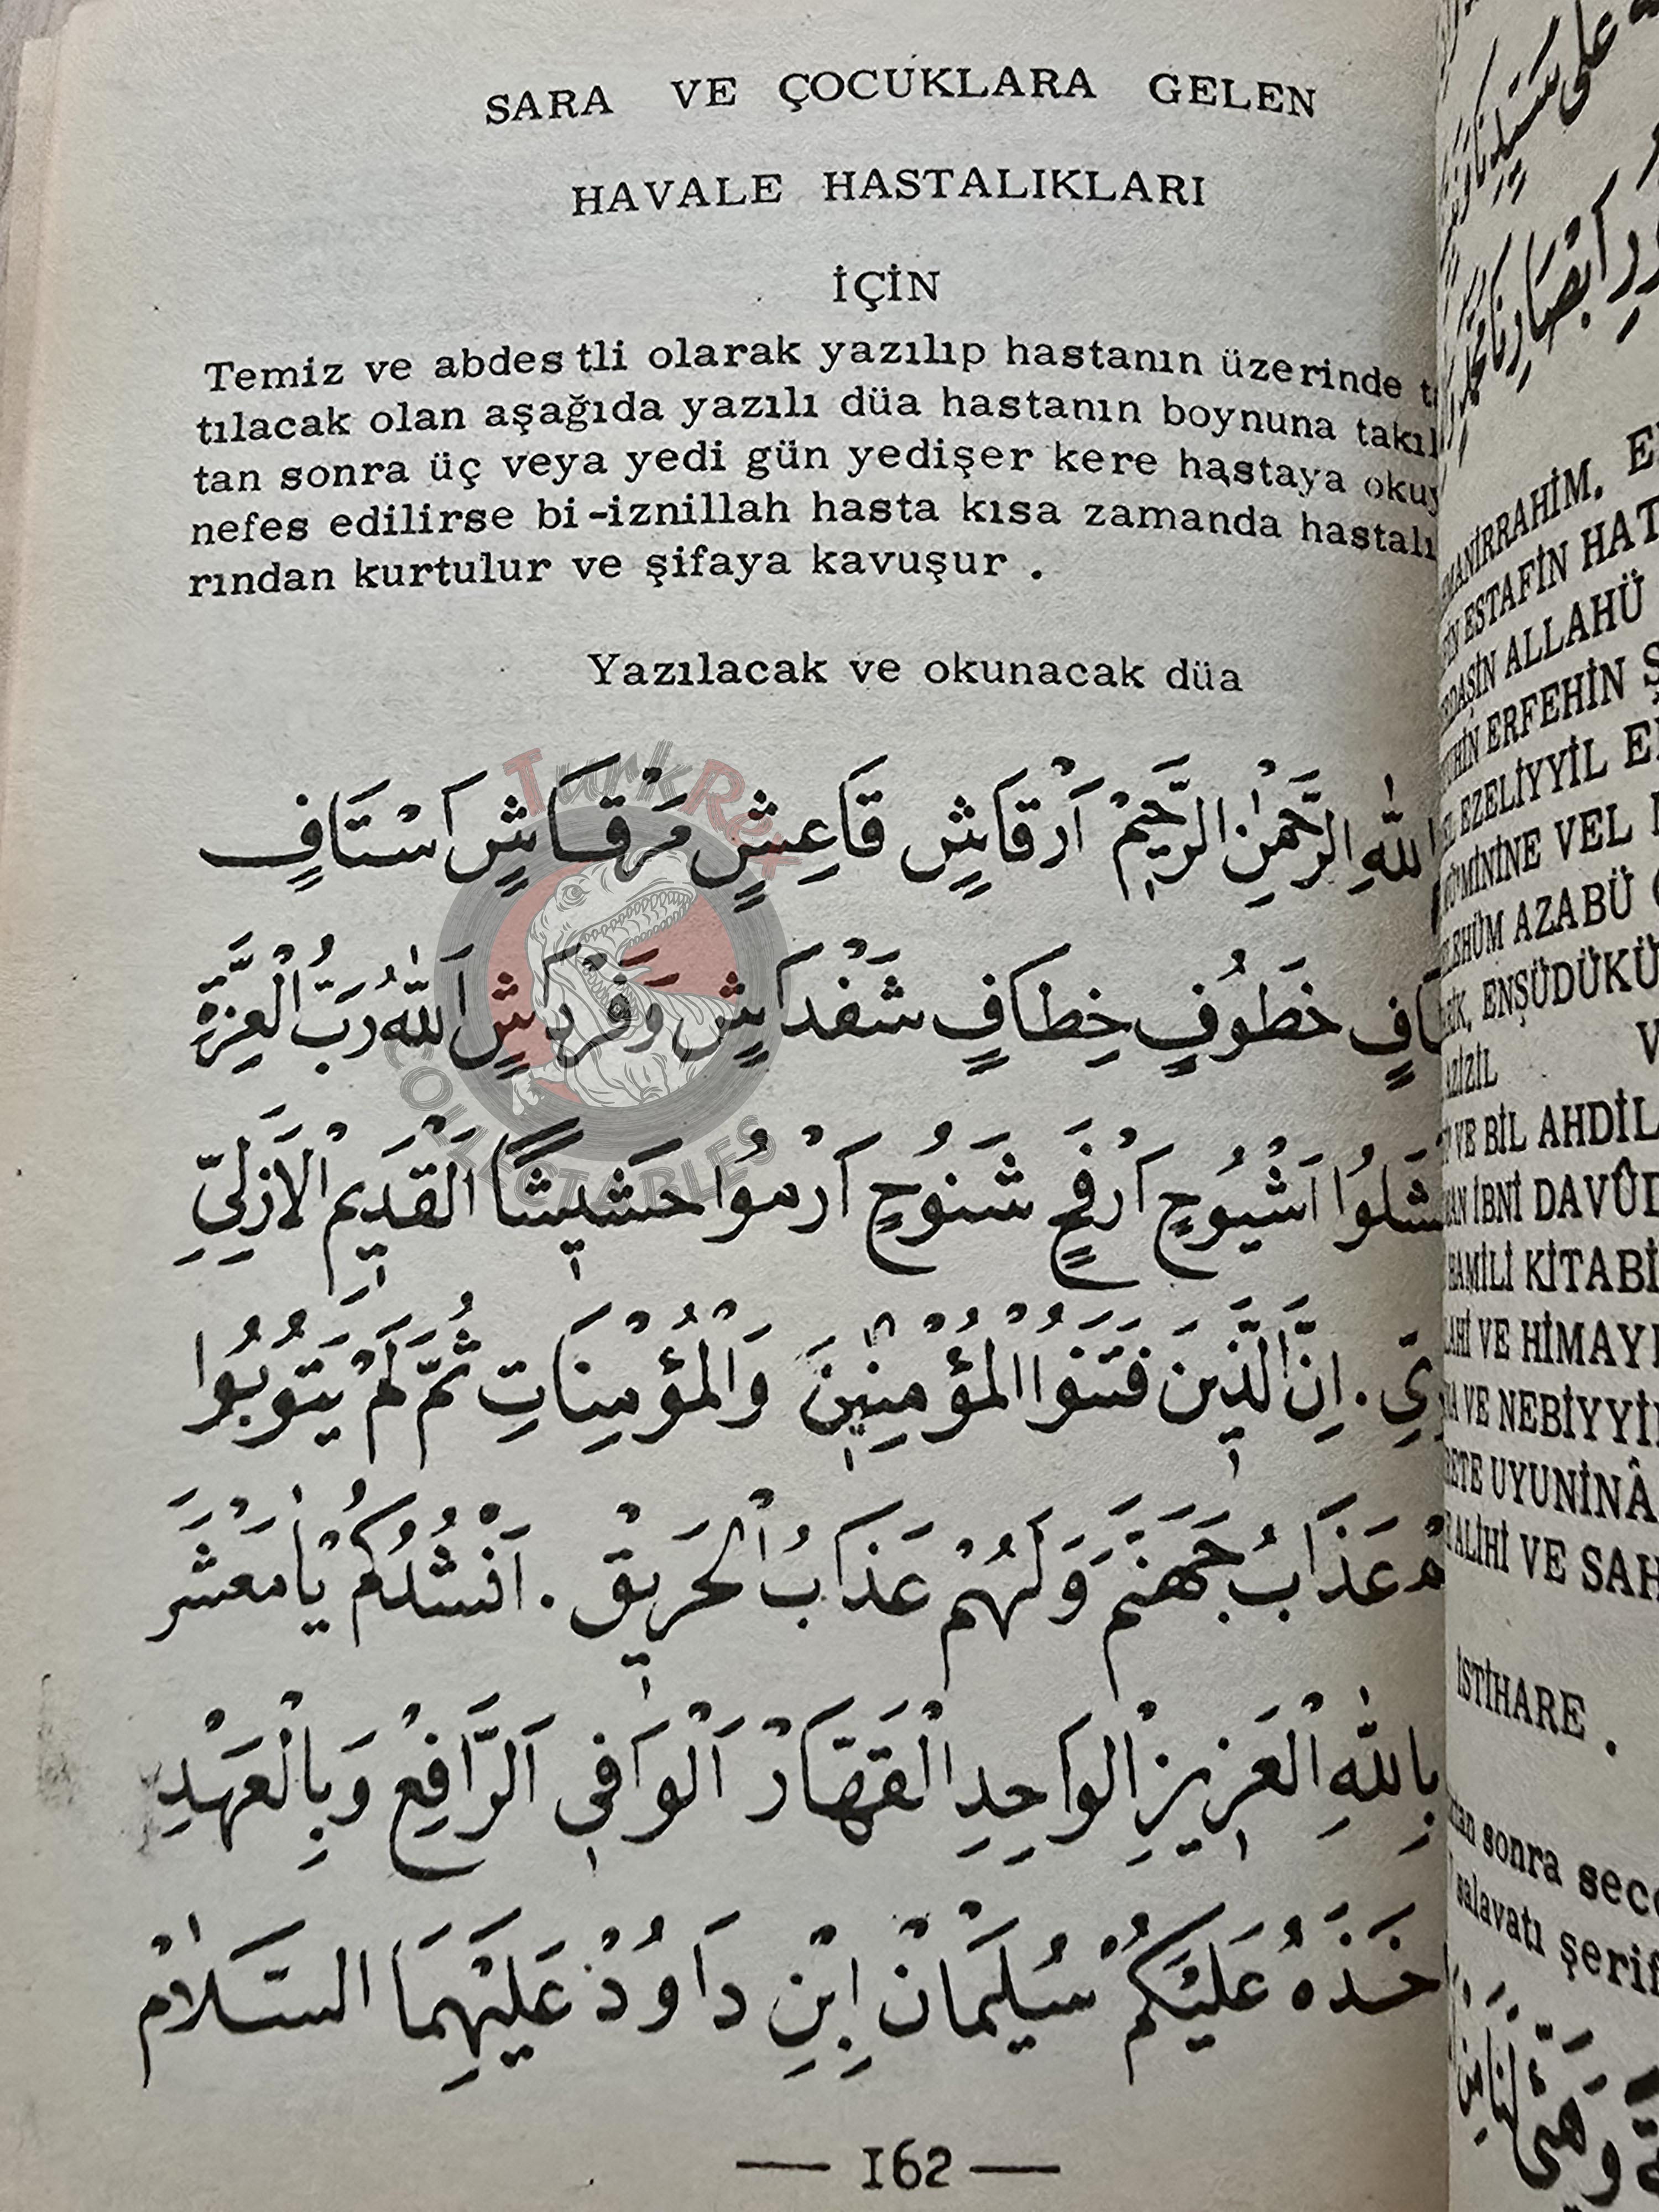 SARA VE ÇOCUKLARA GELEN
HAVALE HASTALIKLARI
İÇİN
Temiz ve abdestli olarak yazılıp hastanın üzerinde
tılacak olan aşağıda yazılı düa hastanın boynuna
tan sonra üç veya yedi gün yedişer kere hastaya
nefes edilirse bi-iznillah hasta kısa zamanda
rından kurtulur ve şifaya kavuşur .
Yazılacak ve okunacak düa
اللهِ الرَّحْمٰنِ الرَّحِيمْ اَرْقَاشٍ قَاعِشٍ مَرْقَاشٍ اَسْتَافٍ
خَطُوفٍ خِطَافٍ شَفْدَاشٍ وَفَرْدَشٍ اَللّٰهُ رَبُّ الْعِزَّةِ
اَشْيُوحٍ اَرْفَحٍ شَنُوحٍ اَرْمُوا حَشِيشًا اَلْقَدِيمِ الْاَزَلِيِّ
. اِنَّ الَّذِينَ فَتَنُوا الْمُؤْمِنِينَ وَالْمُؤْمِنَاتِ ثُمَّ لَمْ يَتُوبُوا
عَذَابُ جَهَنَّمَ وَلَهُمْ عَذَابُ الْحَرِيقْ . اَنْشُدُكُمْ يَا مَعْشَرَ
بِاللهِ الْعَزِيزِ الْوَاحِدِ الْقَهَّارْ اَلْوَافِي اَلرَّافِعِ وَبِالْعَهْدِ
خَذَهُ عَلَيْكُمْ سُلَيْمَانْ اِبْنِ دَاوُدْ عَلَيْهِمَا السَّلَامْ
— 162 —
TurkRex
COLLECTABLES
ESTAFİN
ALLAHÜ
ERFEHİN
EZELİYYİL
VEL
AZABÜ
ENŞÜDÜKÜ
VE BİL AHDİL
İBNİ DAVÛD
KİTABİ
VE HİMAYE
VE NEBİYYİ
UYUNİNÂ
VE SAH
İSTİHARE .
sonra
salavatı şerif